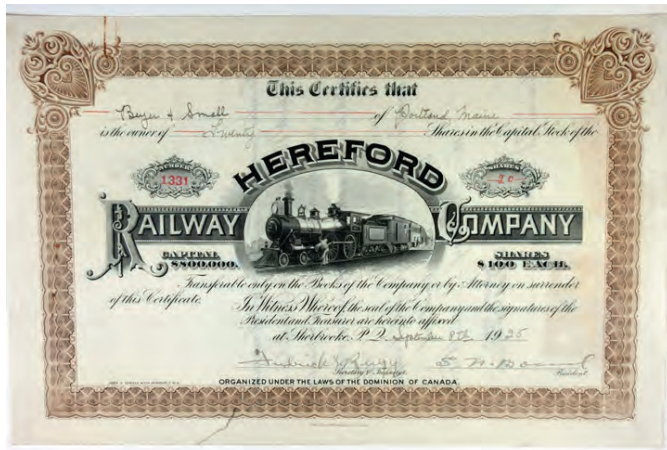 This Certifies that
Beyer & Small of Portland Maine
is the owner of Twenty Shares in the Capital Stock of the
NUMBER
1331
SHARES
20
HEREFORD
RAILWAY COMPANY
CAPITAL
$800,000.
SHARES
$100 EACH.
Transferable only on the Books of the Company or by Attorney on surrender
of this Certificate. In Witness Whereof, the seal of the Company and the signatures of the
President and Treasurer are hereinto affixed
at Sherbrooke, P.Q. September 8th 1925
Secretary & Treasurer.
President.
ORGANIZED UNDER THE LAWS OF THE DOMINION OF CANADA.